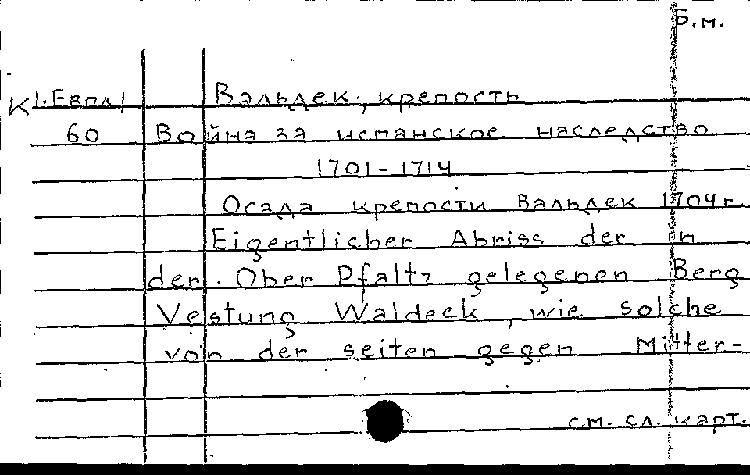 Б.м.
К1.Европ/ Вальдек, крепость
60 Война за испанское наследство
1701-1714
Осада крепости Вальдек 1704 г.
Eigentlicher Abriss der in
der Ober Pfaltz gelegenen Berg
Vestung Waldeck, wie solche
von der seiten gegen Mitter-
см. сл. карт.